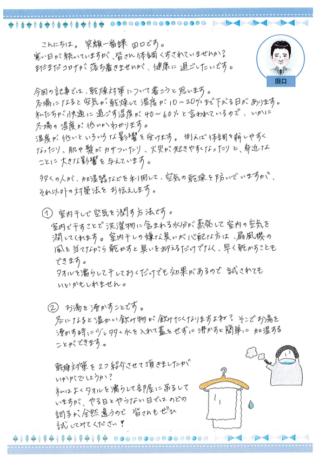 こんにちは。笑顔一番隊 田口です。
寒い日が続いていますが、皆さん体調くずされていませんか？
まだまだコロナが落ち着きませんが、健康に過ごしたいです。
田口
今回の記事では、乾燥対策について書こうと思います。
冬場になると空気が乾燥して湿度が10〜20%まで下がる日があります。
私たちが快適に過ごす湿度が40〜60%と言われているので、いかに
冬場の湿度が低いかわかります。
湿度が低いといろいろな影響を受けます。例えば体調を崩しやすく
なったり、肌や髪がカサついたり、火災が起きやすくなったりと、身近な
ことに大きな影響を与えています。
多くの人が、加湿器などを利用して、空気の乾燥を防いでいますが、
それ以外の対策法をお伝えします。
① 室内干しで空気を潤す方法です。
室内で干すことで洗濯物に含まれる水分が蒸発して室内の空気を
潤してくれます。室内干しの嫌な臭いが心配な方は、扇風機の
風を当てながら乾かすと臭いを抑えるだけでなく、早く乾かすことも
できます。
タオルを濡らして干しておくだけでも効果があるので 試されても
いいかもしれません。
② お湯を沸かすことです。
冬になると温かい飲み物が飲みたくなりますよね？そこでお湯を
沸かす時に少し多く水を入れて蓋をせずに沸かすと簡単に加湿する
ことができます。
乾燥対策を2つ紹介させて頂きましたが
いかがでしたでしょうか？
私はよくタオルを濡らして部屋に吊るして
いますが、やる日とやらない日ではのどの
調子が全然違うので 皆さんもぜひ
試してみてください！